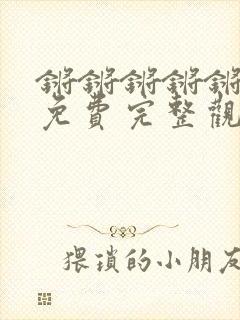 锵锵锵锵锵
免費完整觀
猥瑣的小朋友